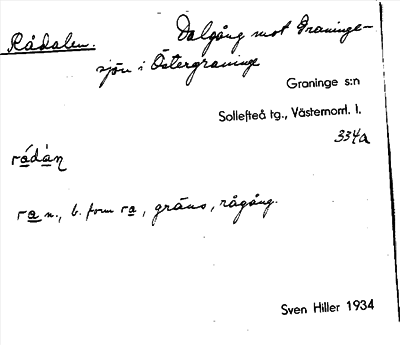 Rådalen.
Dalgång mot Graninge-
sjön i Östergraninge
Graninge s:n
Sollefteå tg., Västernorrl. l.
334a
rádàn
ra n., b. form ra, gräns, rågång.
Sven Hiller 1934